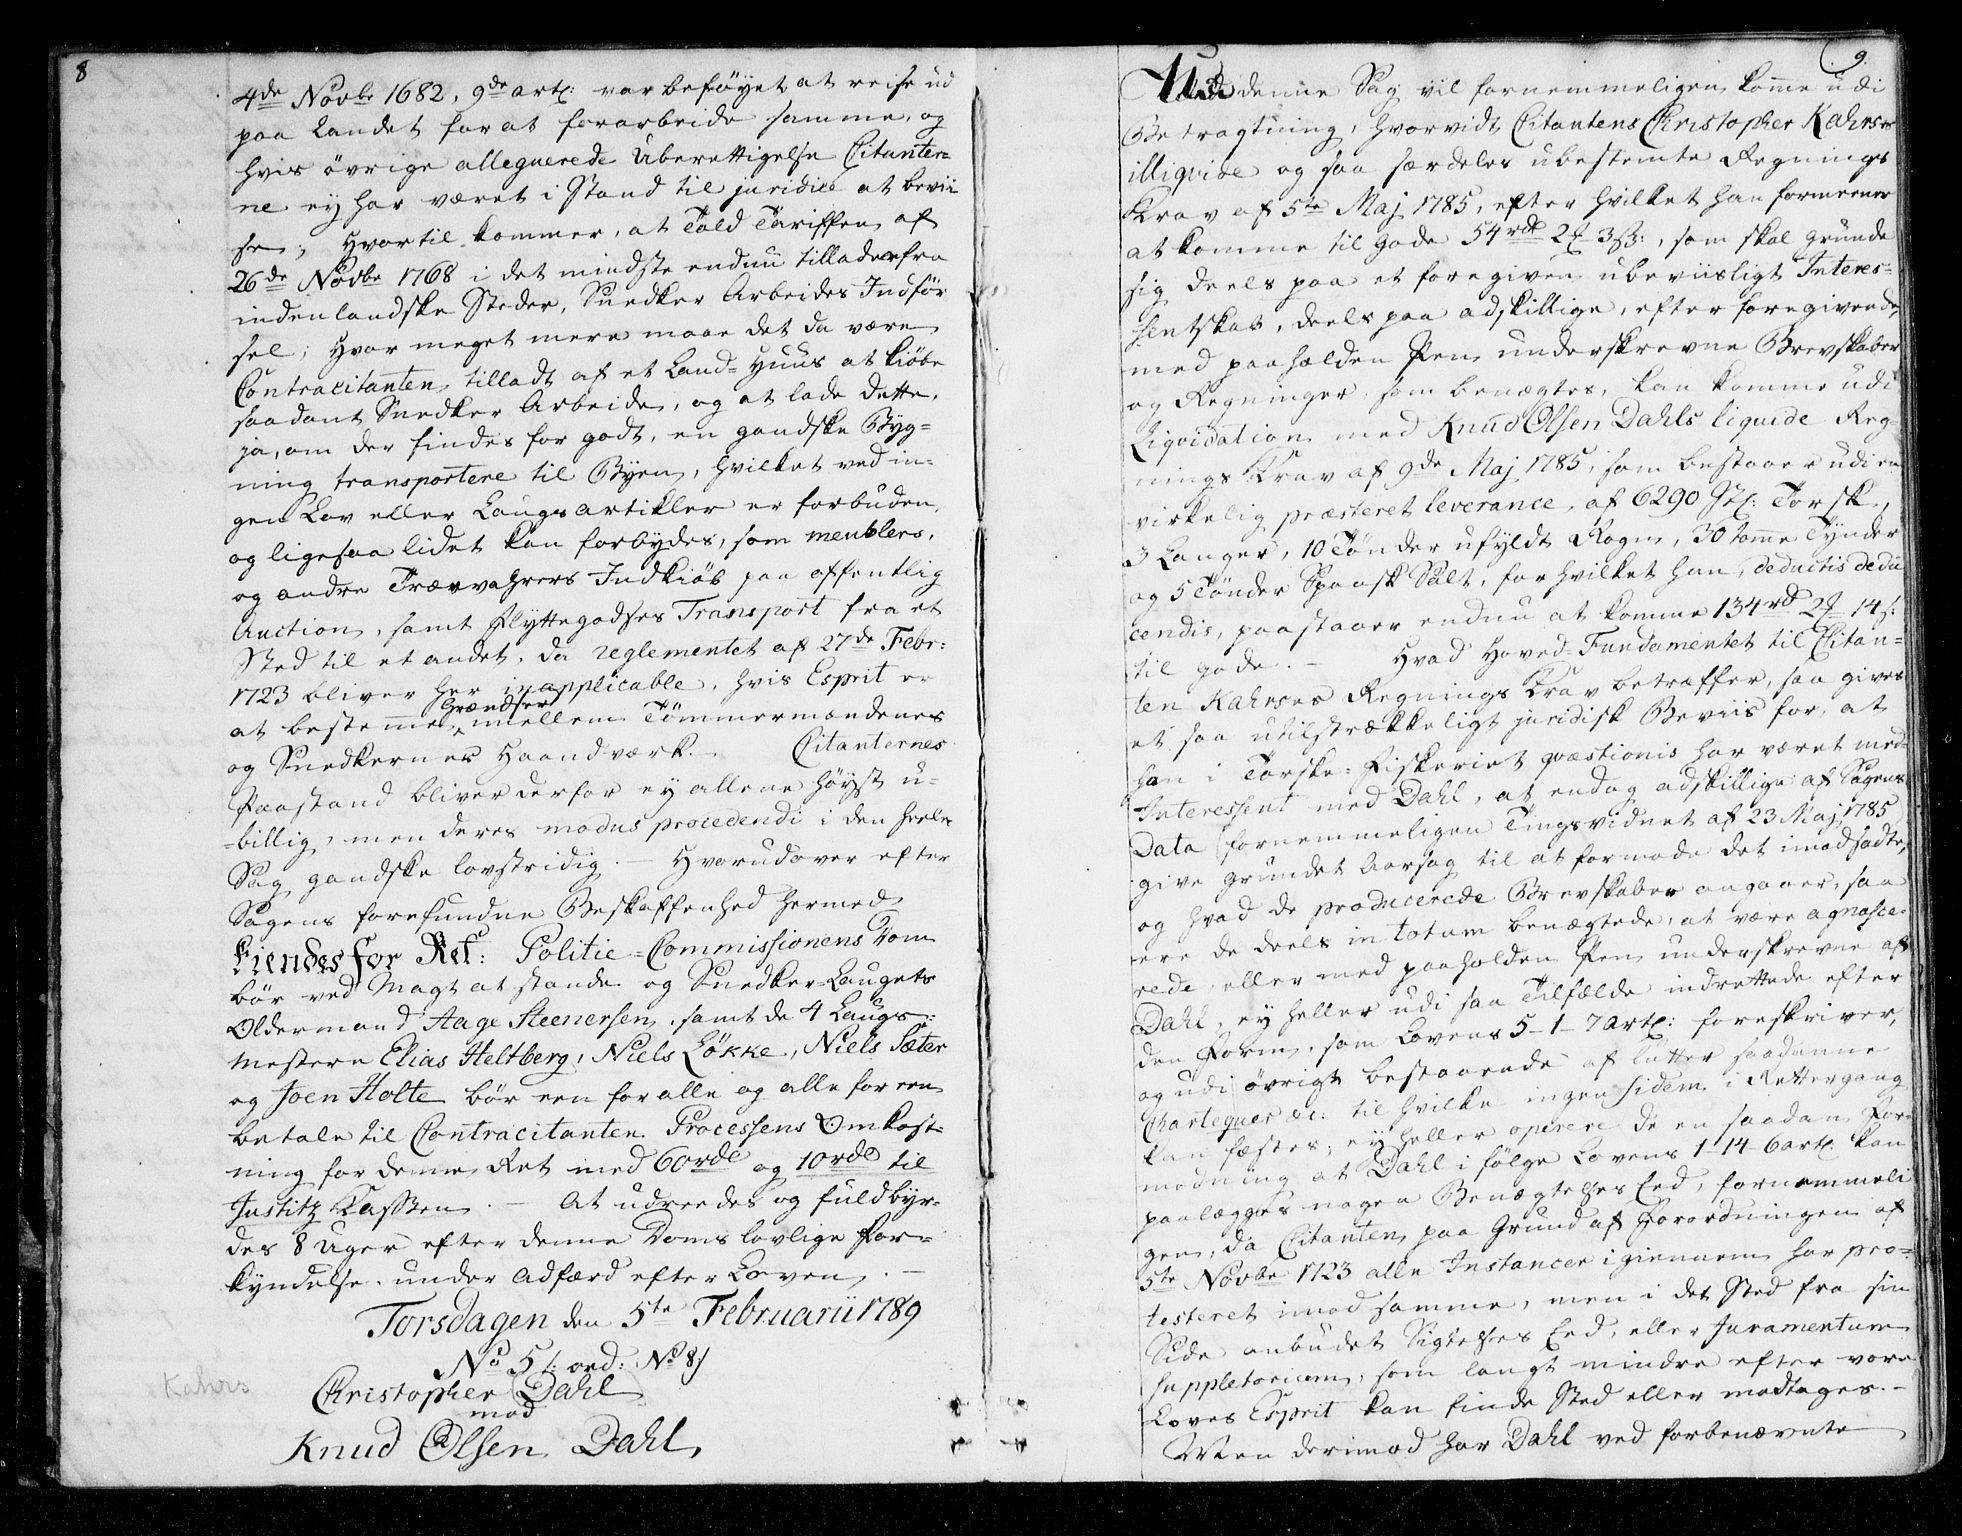 8
4de Novbr 1682, 9de art: var beföyet at reise ud
paa Landet for at forarbeide samme, og
hvis övrige alleguerede Uberettigelse Citanter-
ne ey har været i Stand til juridice at bevii
se; Hvortil kommer, at Told Tariffen af
26de Novbr 1768 i det mindste endnu tillader fra
indenlandske Steder, Snedker Arbeides Indför
sel; Hvor meget mere maae det da være
Contracitanten tilladt af et Land-Huus at kiöbe
saadant Snedker Arbeide, og at lade dette,
ja, om der findes for godt, en gandske Byg-
ning transportere til Byen, hvilket ved in-
gen Lov eller Laugs artikler er forbuden,
og ligesaa lidet kan forbydes, som meublers,
og andre Trævahrers Indkiöb paa offentlig
Auction, samt Flyttegodses Transport fra et
Sted til et andet, da reglementet af 27de Febr:
1723 bliver her inapplicable, hvis Esprit er
at bestemme Grændser mellem Tömmermændenes
og Snedkernes Haandværk. Citanternes
Paastand bliver derfor ey allene höyst u-
billig, men deres modus procedendi i den heele
Sag gandske lovstridig. — Hvorudover efter
Sagens forefundne Beskaffenhed hermed
Kiendes for Ret: Politie-Commissionens Dom
bör ved Magt at stande og Snedker-Laugets
Oldermand Aage Steenersen, samt de 4 Laugs-
mestere Elias Heltberg, Niels Lökke, Niels Sæter
og Joen Holte bör een for alle og alle for een
betale til Contracitanten Processens Omkost-
ning for denne Ret med 60 rde og 10 rde til
Justitz Kassen. — At udreedes og fuldbyr-
des 8 Uger efter denne Doms lovlige For-
kyndelse, under Adfærd efter Loven. —
Torsdagen den 5te Februarii 1789
No 5 /: ord: No 8/
Kahrs
Christopher (Dahl)
mod
Knud Olsen Dahl,
9.
Udi denne Sag vil fornemmeligen komme udi
Betragtning, hvorvidt Citantens Christopher Kahrses
illiqvide og saa særdeles ubestemte Regnings
Krav af 5te Maj 1785, efter hvilket han formeener
at komme til Gode 54 rd 2 3 s:, som skal grunde
sig deels paa et foregiven ubeviisligt Interes-
sentskab, deels paa adskillige, efter foregivende,
med paaholden Pen underskrevne Brevskaber
og Regninger, som benægtes, kan komme udi
Liqvidation med Knud Olsen Dahls liqvide Reg-
nings Krav af 9de Maj 1785, som bestaaer udi en
virkelig præsteret leverance af 6290 St: Torsk,
3 Langer, 10 Tönder ufyldt Rogn, 30 tomme Tynder
og 5 Tönder Spansk Salt, for hvilket han, deductis dedu
cendis, paastaaer endnu at komme 134 rd 2 14 s:
til gode. — Hvad Hoved-Fundamentet til Citan-
ten Kahrses Regnings Krav betræffer, saa gives
et saa utilstrækkeligt juridisk Beviis for, at
han i Torske-Fiskeriet qvæstionis har været med-
Interessent med Dahl, at endog adskillige af Sagens
Data (fornemmeligen Tingsvidnet af 23 Maj 1785
give grundet Aarsag til at formode det imodsadte,
og hvad de producerede Brevskaber angaaer, saa
ere de deels in totum benægtede, at være agnosce-
rede, eller med paaholden Pen underskrevne af
Dahl, ey heller udi saa Tilfælde indrettede efter
den Form, som Lovens 5-1-7 art: foreskriver,
og udi övrigt bestaaende af lutter saadanne
Chartequer &c: til hvilke ingen Fidem i Rettergang
kan fæstes; ey heller operere de en saadan For-
modning at Dahl i fölge Lovens 1-14-6 art: kan
paalægges nogen Benægtelses Eed, fornemmeli
gen, da Citanten paa Grund af Forordningen af
5te Novbr 1723 alle Instancer igiennem har pro-
testeret imod samme, men i det Sted fra sin
Side anbudet Sigtelses Eed, eller Juramentum
suppletorium, som langt mindre efter vore
Loves Esprit kan finde Sted eller modtages. —
Men derimod har Dahl ved forbenævnte